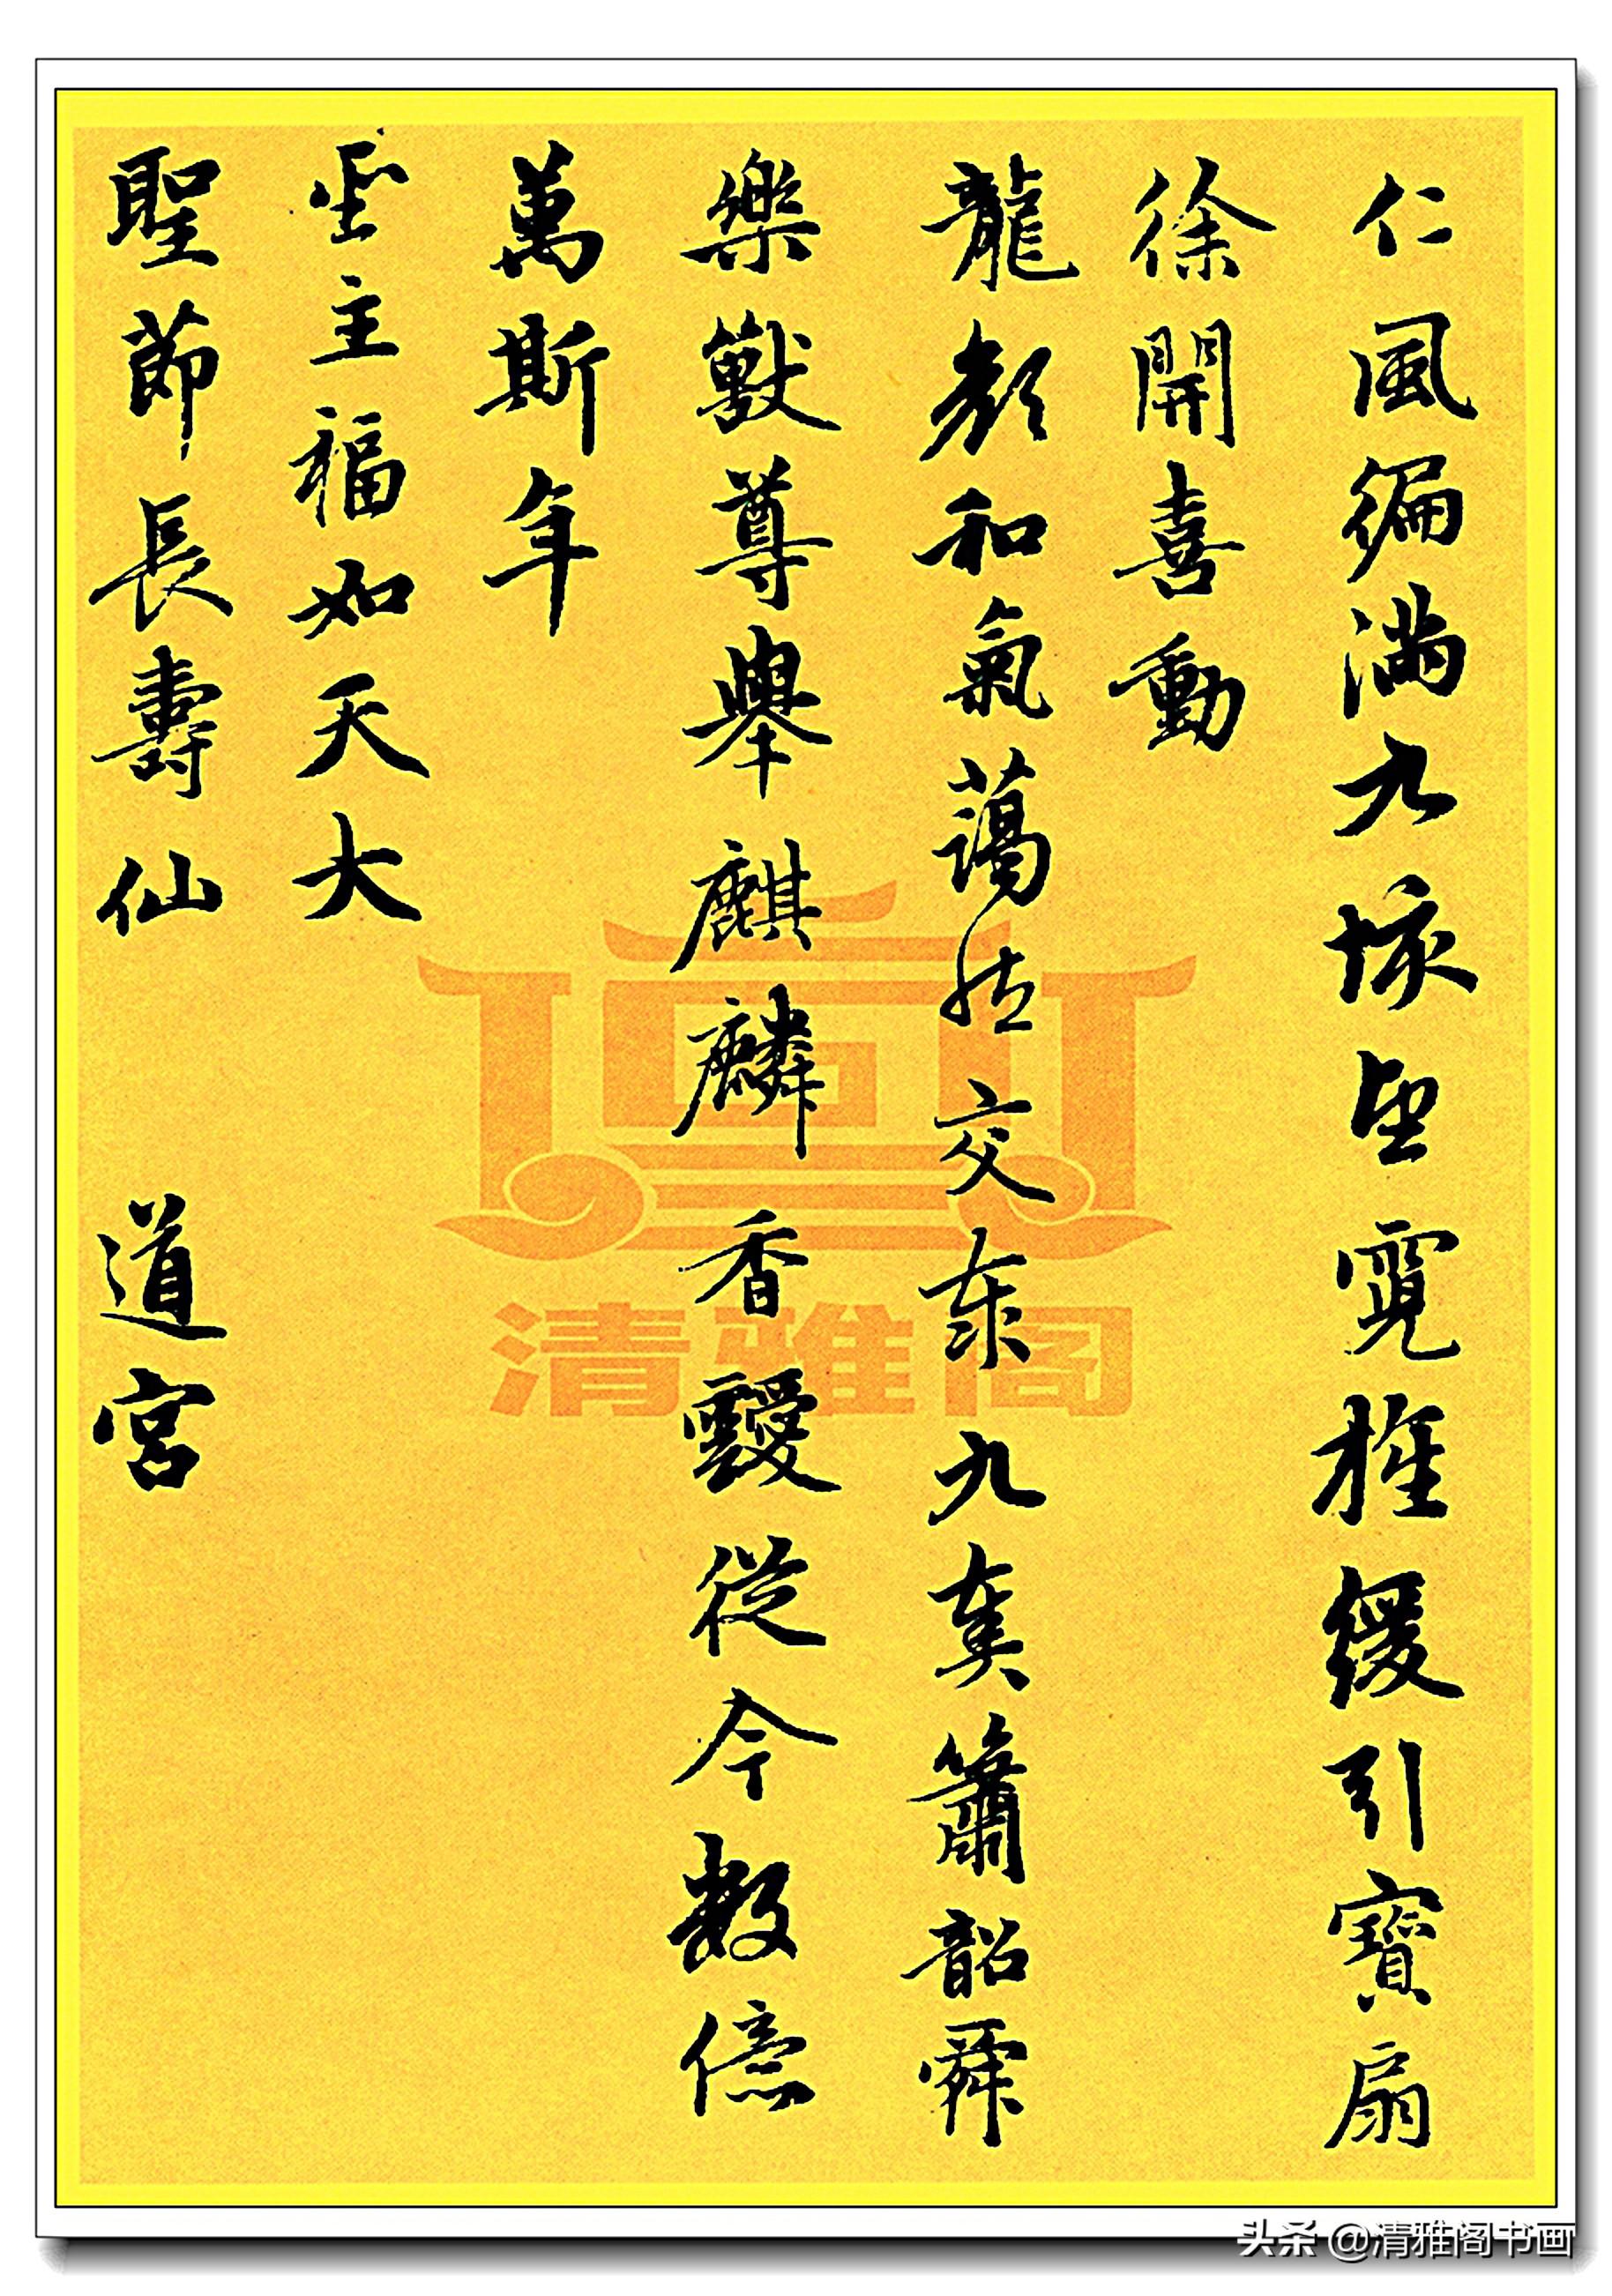 仁風徧滿九垓望霓旌緩引寶扇
徐開喜動
龍顏和氣藹然交泰九奏簫韶舜
樂獸尊舉麒麟香靉從今數億
萬斯年
聖主福如天大
聖節長壽仙 道宮
清雅阁
头条 @清雅阁书画